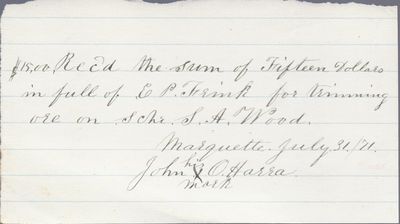 $15.00 Rec'd the sum of Fifteen Dollars
in full of E P. Frink for trimming
ore on Schr. S. A. Wood.
Marquette. July 31/71.
his
John X O.Harra.
mark